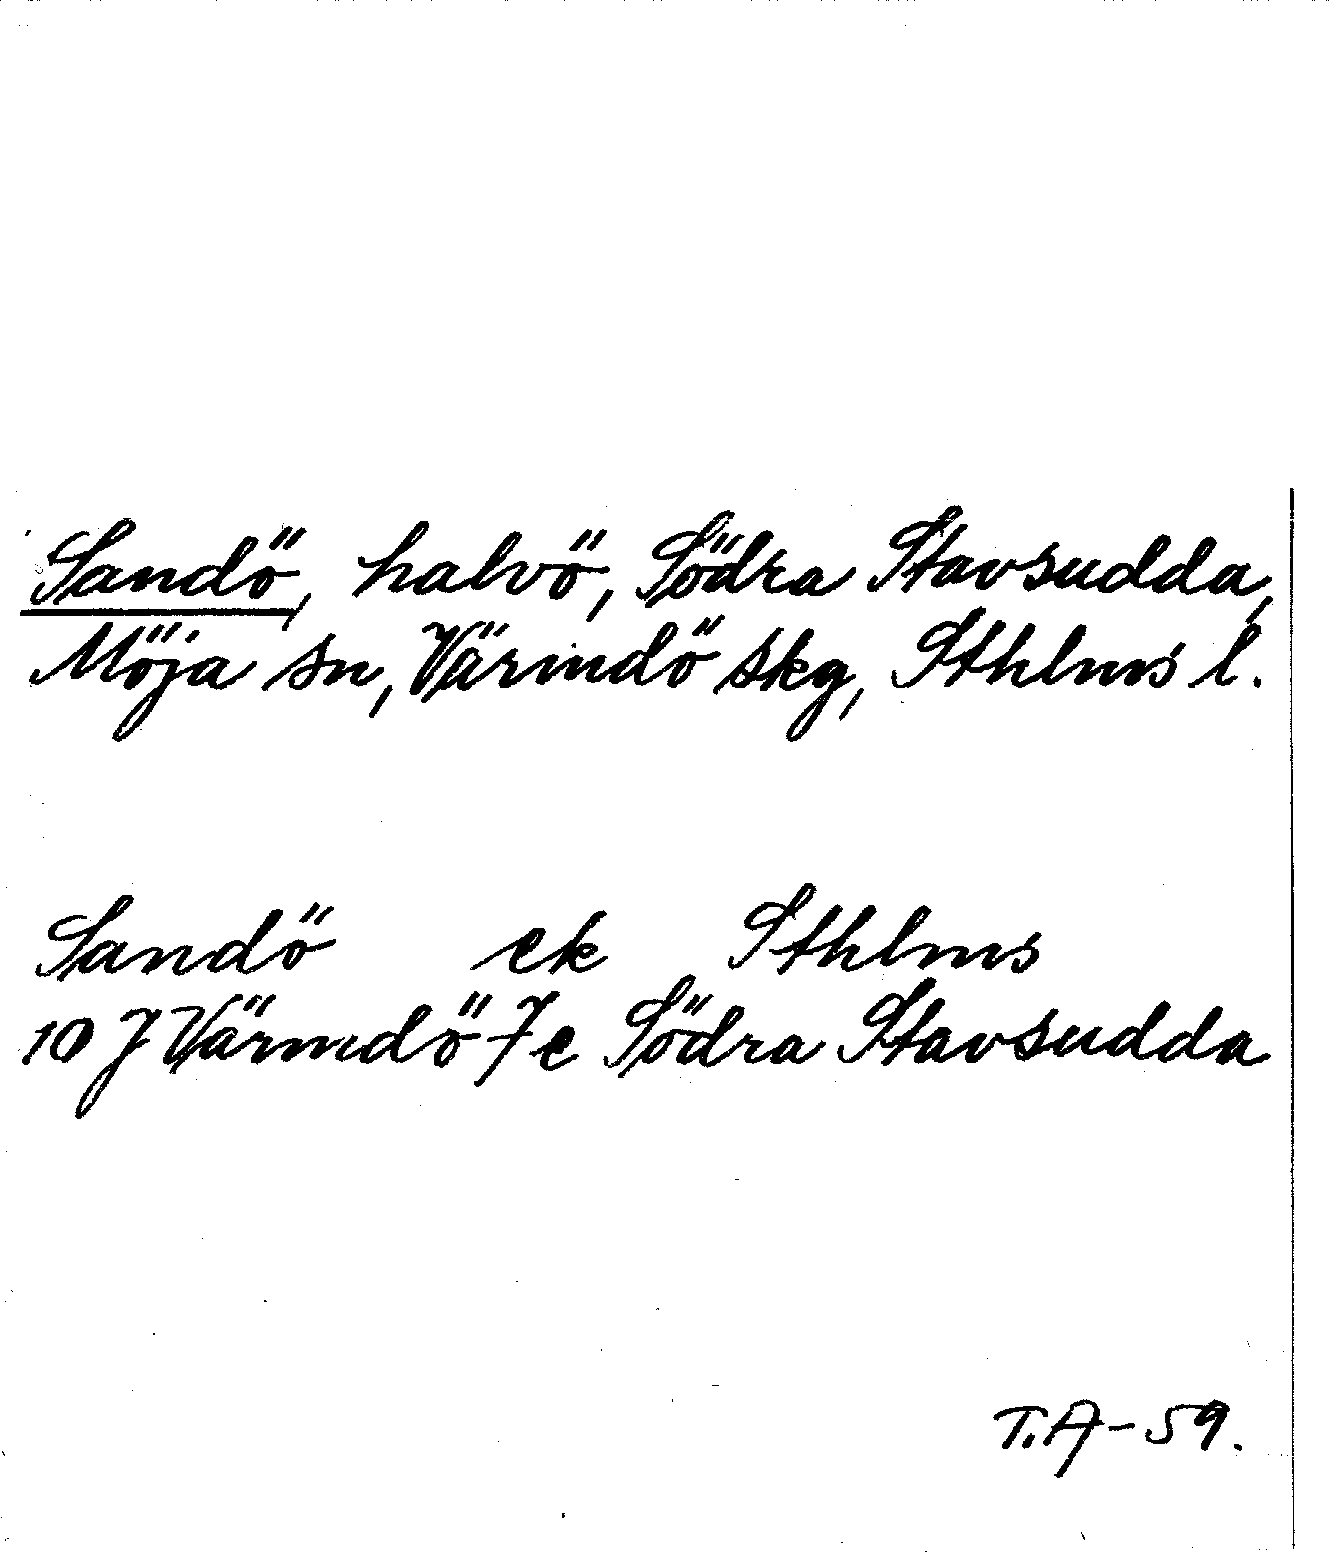 Sandö, halvö, Södra Stavsudda,
Möja sn, Värmdö skg, Sthlms l.
Sandö ek Sthlms
10 J Värmdö 7e Södra Stavsudda
T.A-59.